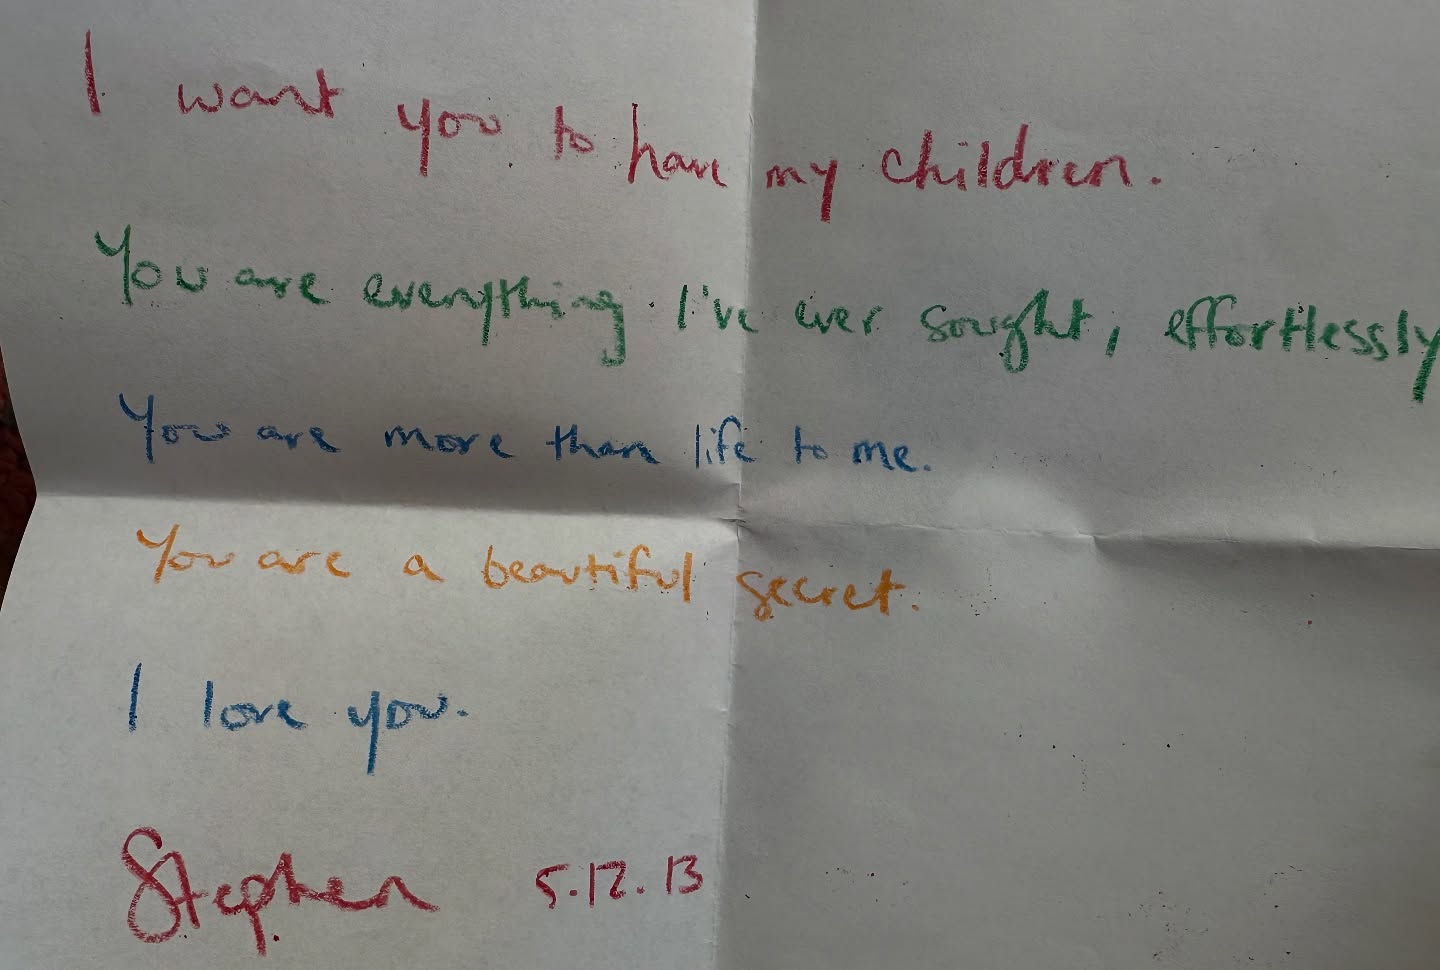 I want you to have my children.
You are everything I've ever sought, effortlessly
You are more than life to me.
You are a beautiful secret.
I love you.
Stephen 5.12.13